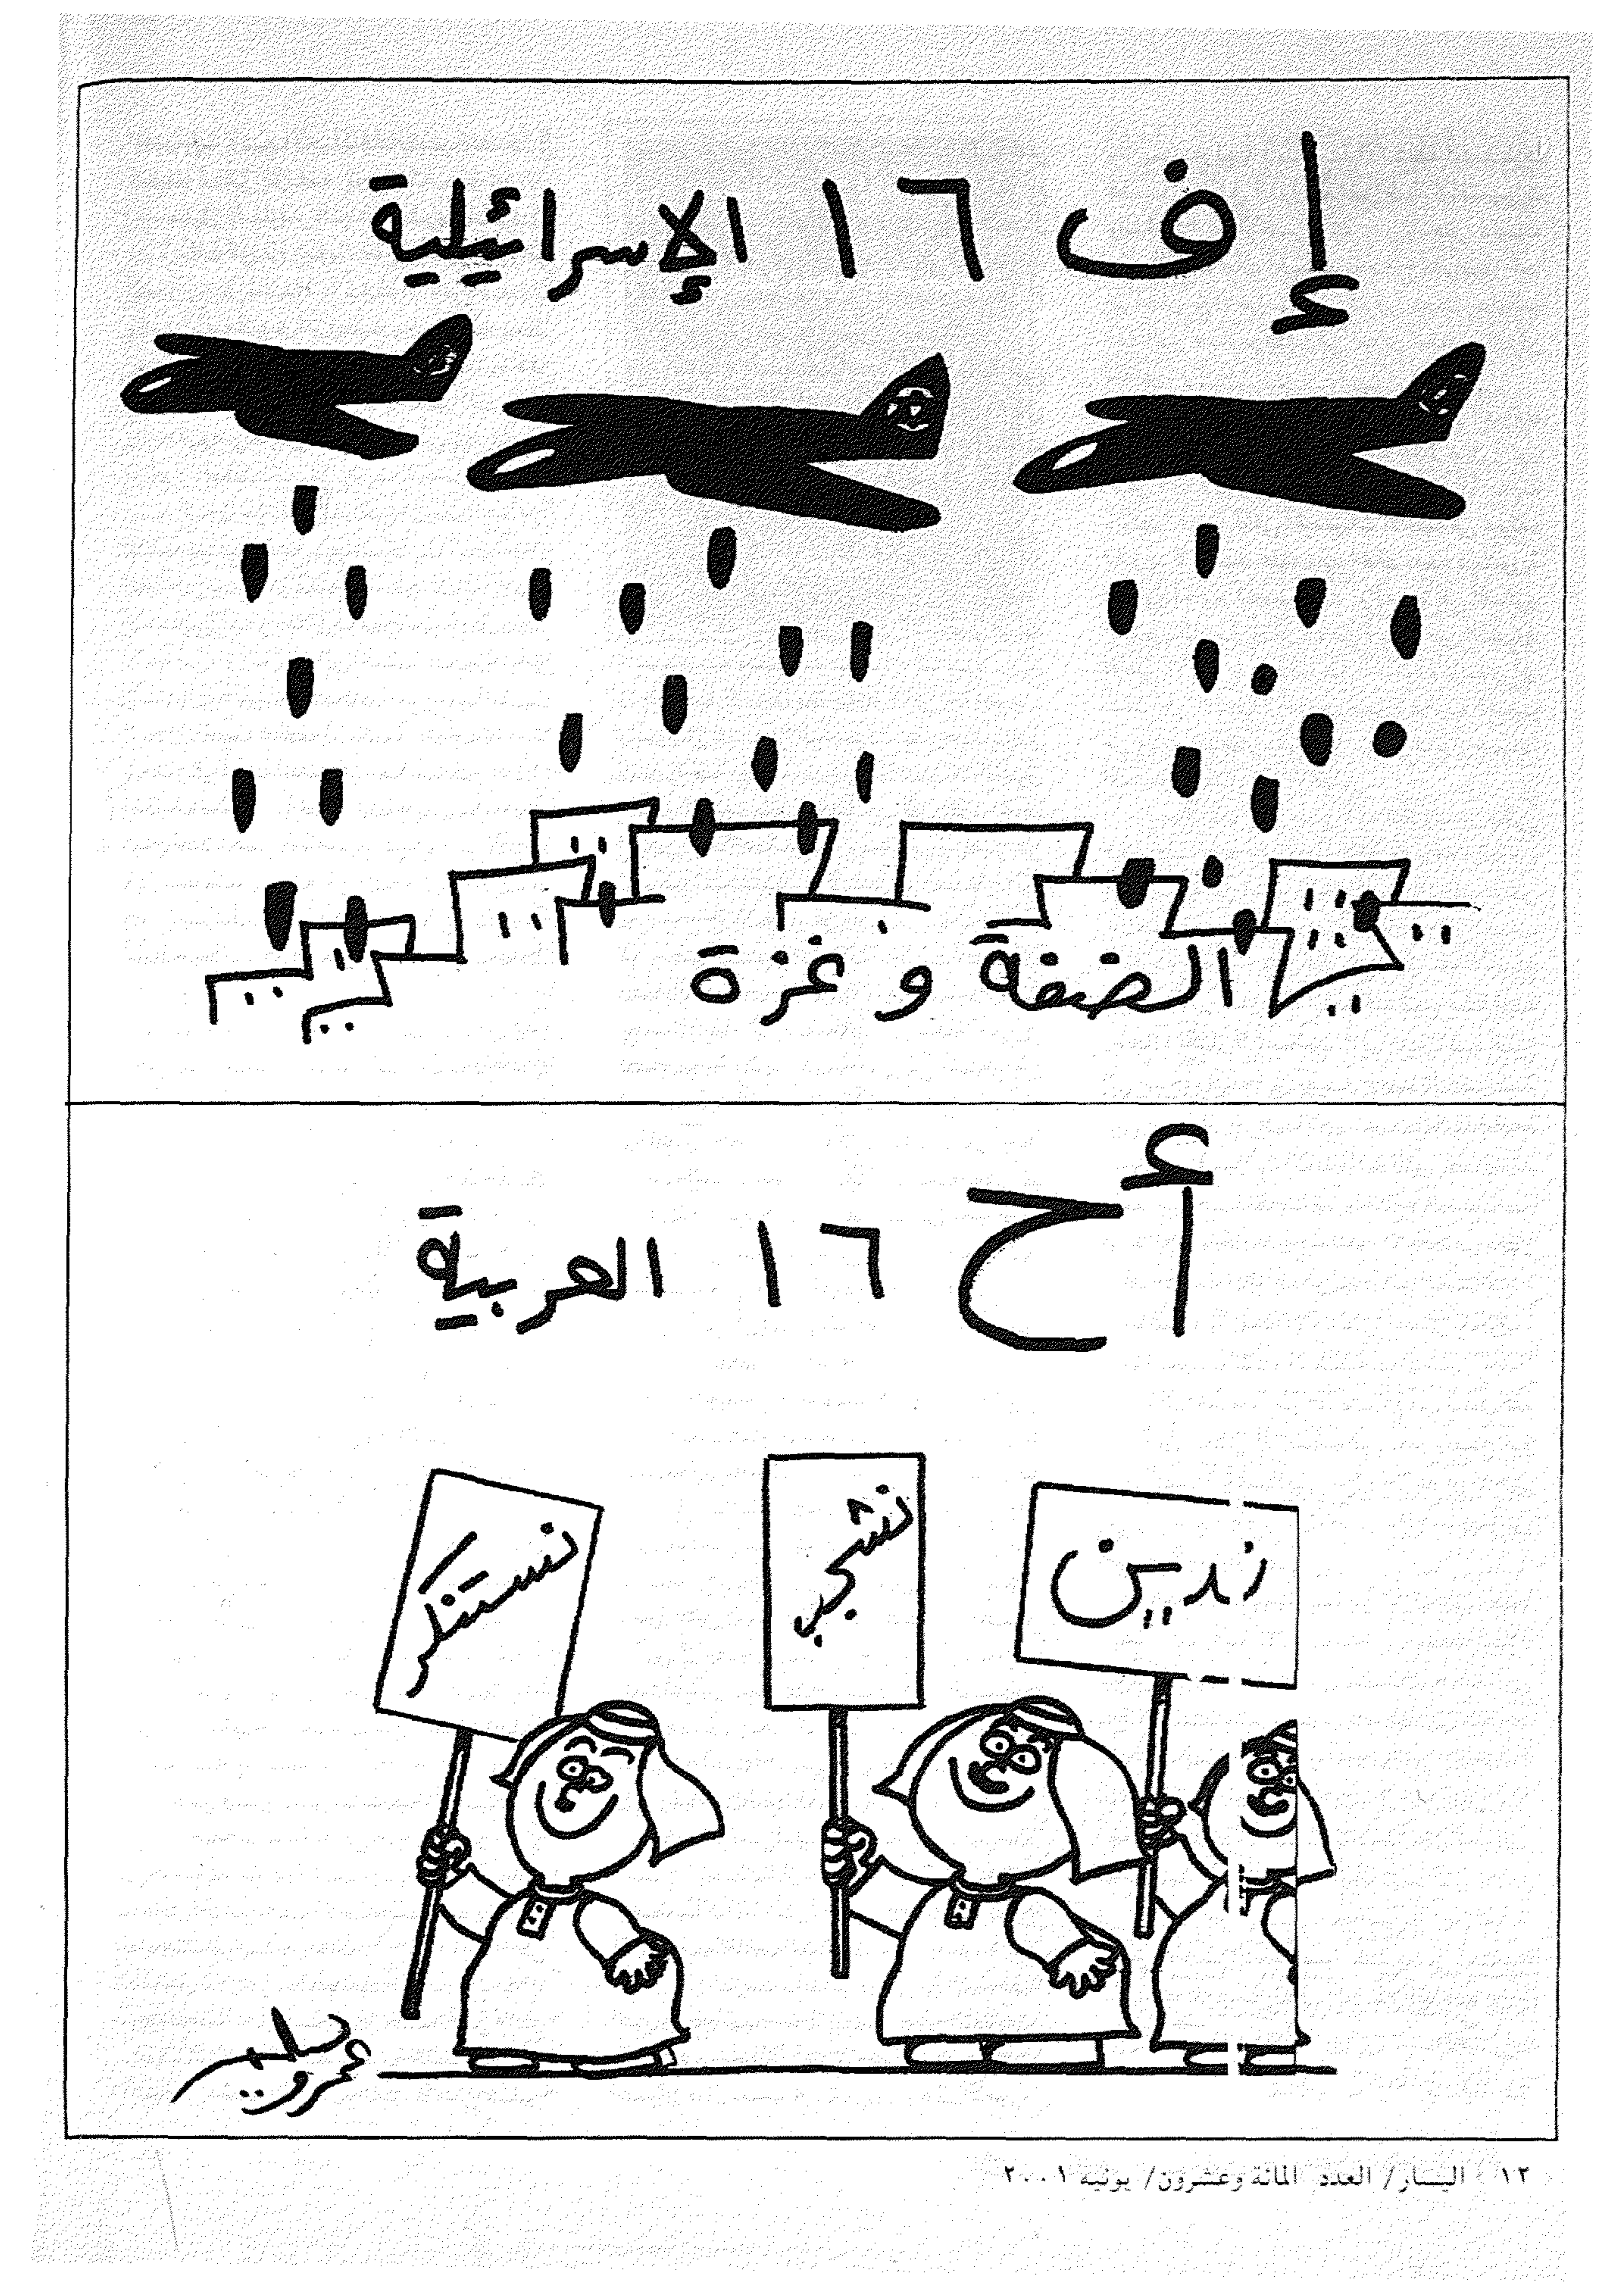 إف ١٦ الإسرائيلية
الضفة و غزة
أح ١٦ العربية
ندين
نشجب
نستنكر
عمرو سليم
١٢ اليسار/ العدد المائة وعشرون/ يونيه ٢٠٠١